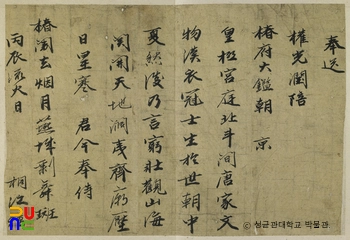 奉送
權光潤陪
椿府大鑑朝 京
皇極宮庭北斗間唐家文
物漢衣冠士生於世朝中
夏然後乃言窮壯觀山海
関開天地濶幽齊廟歷
日星寒 君今奉侍
椿闈去烟月燕臺剩舞斑
丙辰流火日 桐江
성균관대학교 박물관